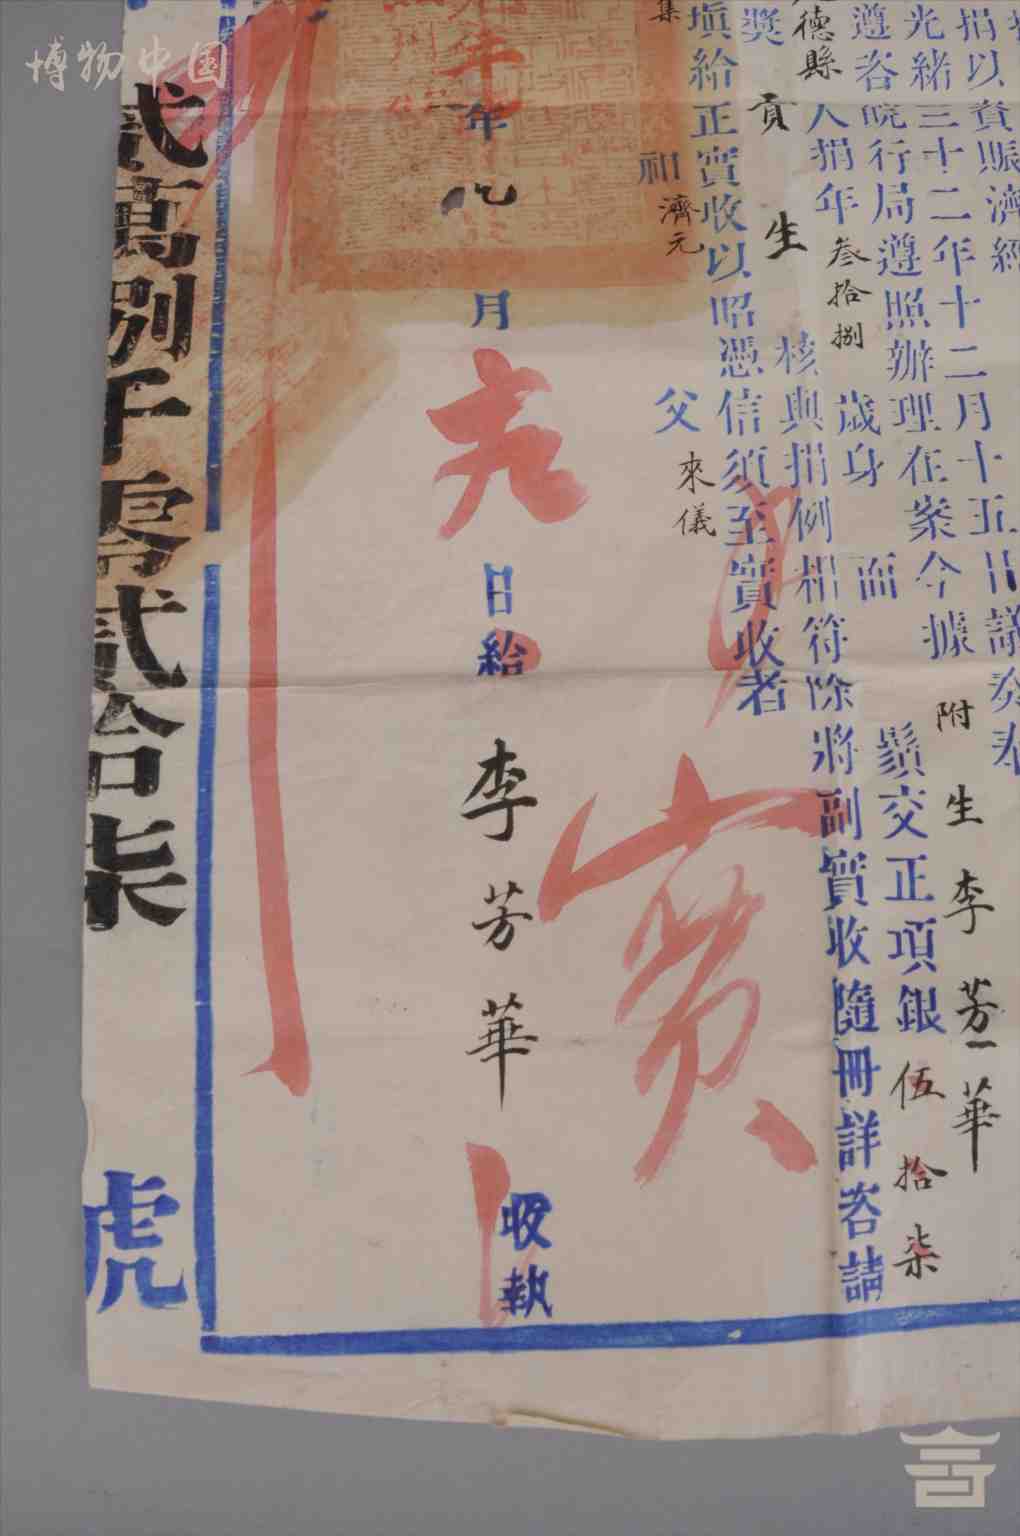 捐以資賑濟經
光緒三十二年十二月十五日議奏奉
遵咨皖行局遵照辦理在案今據 附生李芳華
德縣人捐年叁拾捌歲身 面 鬚交正項銀伍拾柒
獎 貢生 核與捐例相符除將副實收隨冊詳咨請
填給正實收以昭憑信須至實收者
集
祖 濟元
父 來儀
年 月 日給 李芳華 收執
實
貳萬捌千零貳拾柒
虎
博物中国